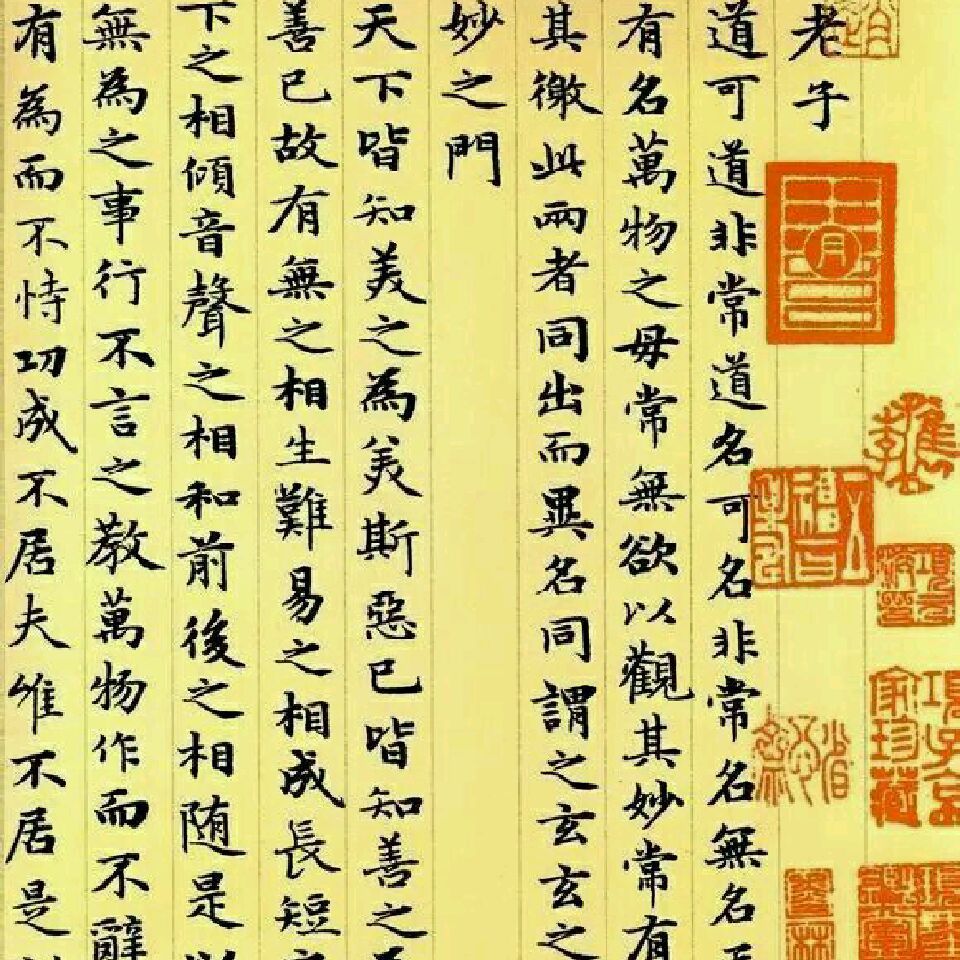 老子
道可道非常道名可名非常名無名
有名萬物之母常無欲以觀其妙常有
其徼此兩者同出而異名同謂之玄玄之
妙之門
天下皆知美之為美斯惡已皆知善之
善已故有無之相生難易之相成長短
下之相傾音聲之相和前後之相隨是
無為之事行不言之教萬物作而不辭
有為而不恃功成不居夫唯不居是
項子京
家珍藏